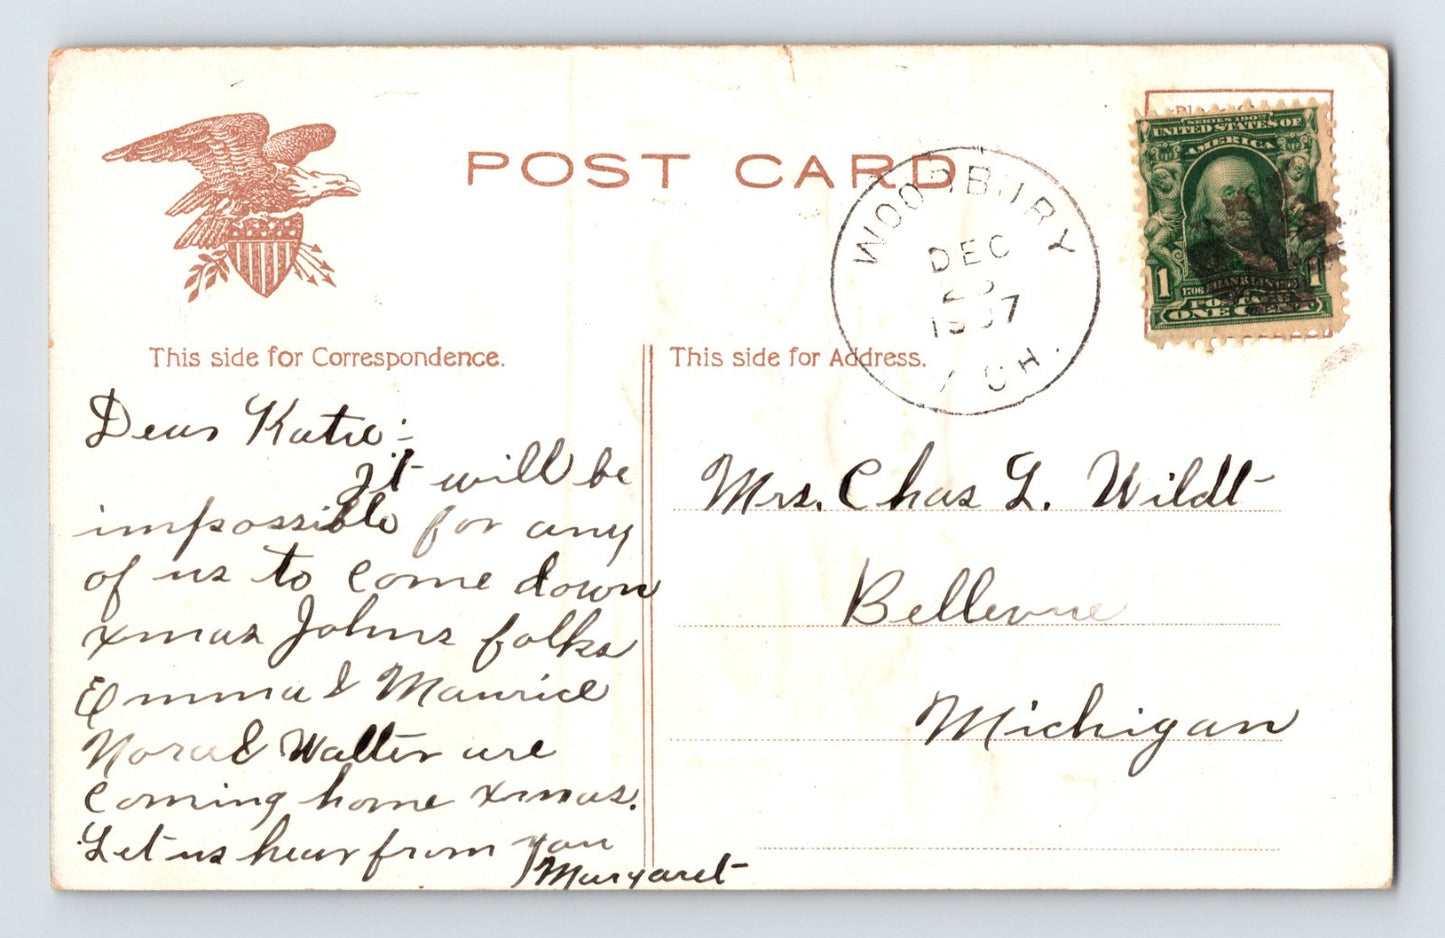 POST CARD
WOODBURY
DEC
1907
SERIES 1902
UNITED STATES OF
AMERICA
1 1
1706
FRANKLIN
POSTAGE
ONE CENT
This side for Correspondence.
This side for Address.
Dear Katie:-
It will be
impossible for any
of us to come down
xmas Johns folks
Emma & Maurice
Nora & Walter are
coming home xmas.
Let us hear from you
Margaret
Mrs. Chas L. Wildt
Bellevue
Michigan